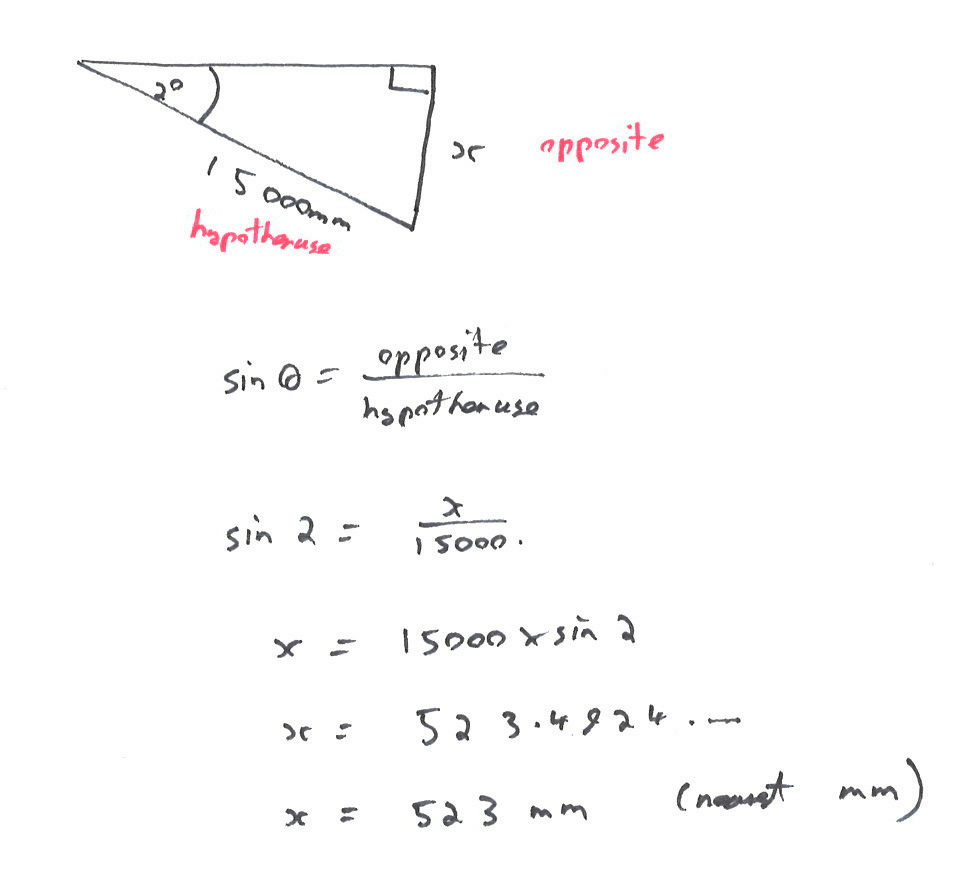 2°
x opposite
15000mm
hypothenuse
sin θ = opposite / hypothenuse
sin 2 = x / 15000.
x = 15000 x sin 2
x = 523.4924....
x = 523 mm (nearest mm)